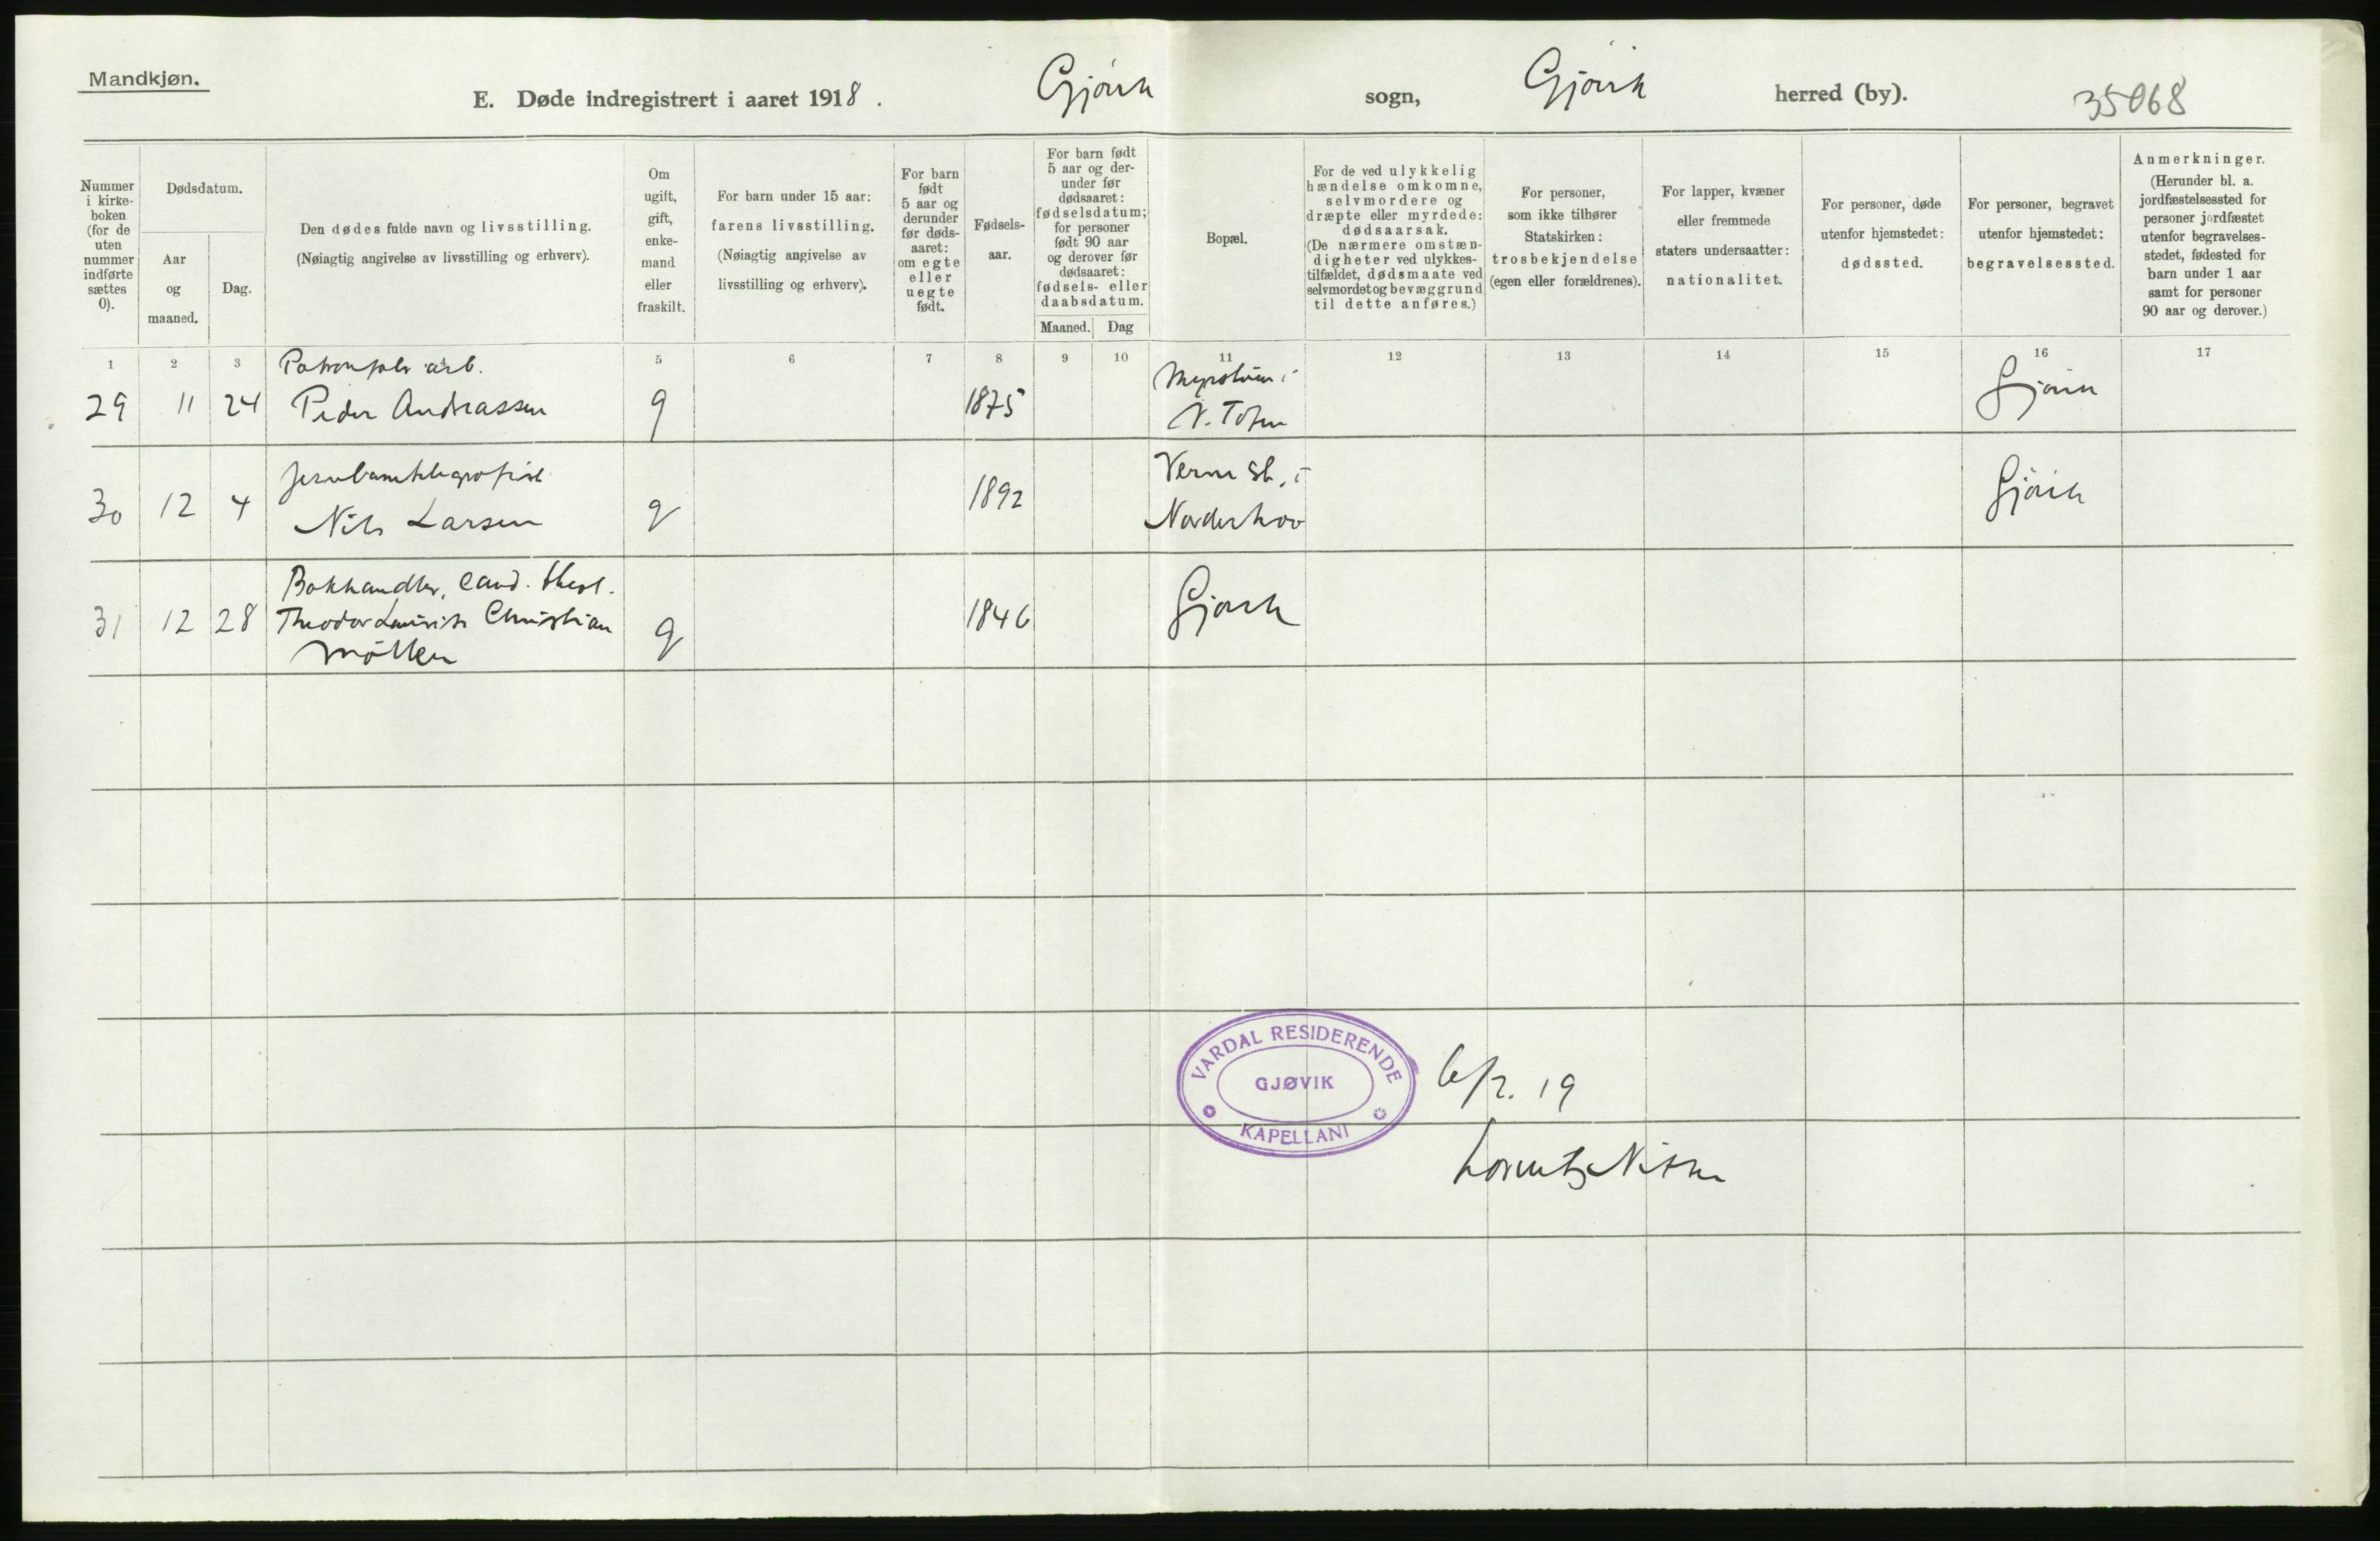 Mandkjøn.
E. Døde indregistrert i aaret 1918. Gjøvik sogn, Gjøvik herred (by). 35068
Nummer i kirke-boken (for de uten nummer indførte sættes 0).
Dødsdatum.
Aar og maaned.
Dag.
Den dødes fulde navn og livsstilling.
(Nøiagtig angivelse av livsstilling og erhverv).
Om ugift, gift, enke-mand eller fraskilt.
For barn under 15 aar: farens livsstilling.
(Nøiagtig angivelse av livsstilling og erhverv).
For barn født 5 aar og derunder før døds-aaret: om egte eller uegte født.
Fødsels-aar.
For barn født 5 aar og der-under før dødsaaret: fødselsdatum; for personer født 90 aar og derover før dødsaaret: fødsels- eller daabsdatum.
Maaned. Dag
Bopæl.
For de ved ulykkelig hændelse omkomne, selvmordere og dræpte eller myrdede: dødsaarsak.
(De nærmere omstæn-digheter ved ulykkes-tilfældet, dødsmaate ved selvmordet og bevæggrund til dette anføres.)
For personer, som ikke tilhører Statskirken: trosbekjendelse (egen eller forældrenes).
For lapper, kvæner eller fremmede staters undersaatter: nationalitet.
For personer, døde utenfor hjemstedet: dødssted.
For personer, begravet utenfor hjemstedet: begravelsessted.
Anmerkninger.
(Herunder bl. a. jordfæstelsessted for personer jordfæstet utenfor begravelses-stedet, fødested for barn under 1 aar samt for personer 90 aar og derover.)
1 2 3 5 6 7 8 9 10 11 12 13 14 15 16 17
arb.
29 11 24 Peder Andreassen g 1875 V. Toten Gjøvik
Jernbanetelegrafist Verme St. i
30 12 4 Nils Larsen g 1892 Norderhov Gjøvik
Bokhandler, Cand. theol.
31 12 28 Theodor Lauritz Christian g 1846 Gjøvik
Möller
VARDAL RESIDERENDE
GJØVIK
KAPELLANI
6/2. 19
Lorentz Nissen